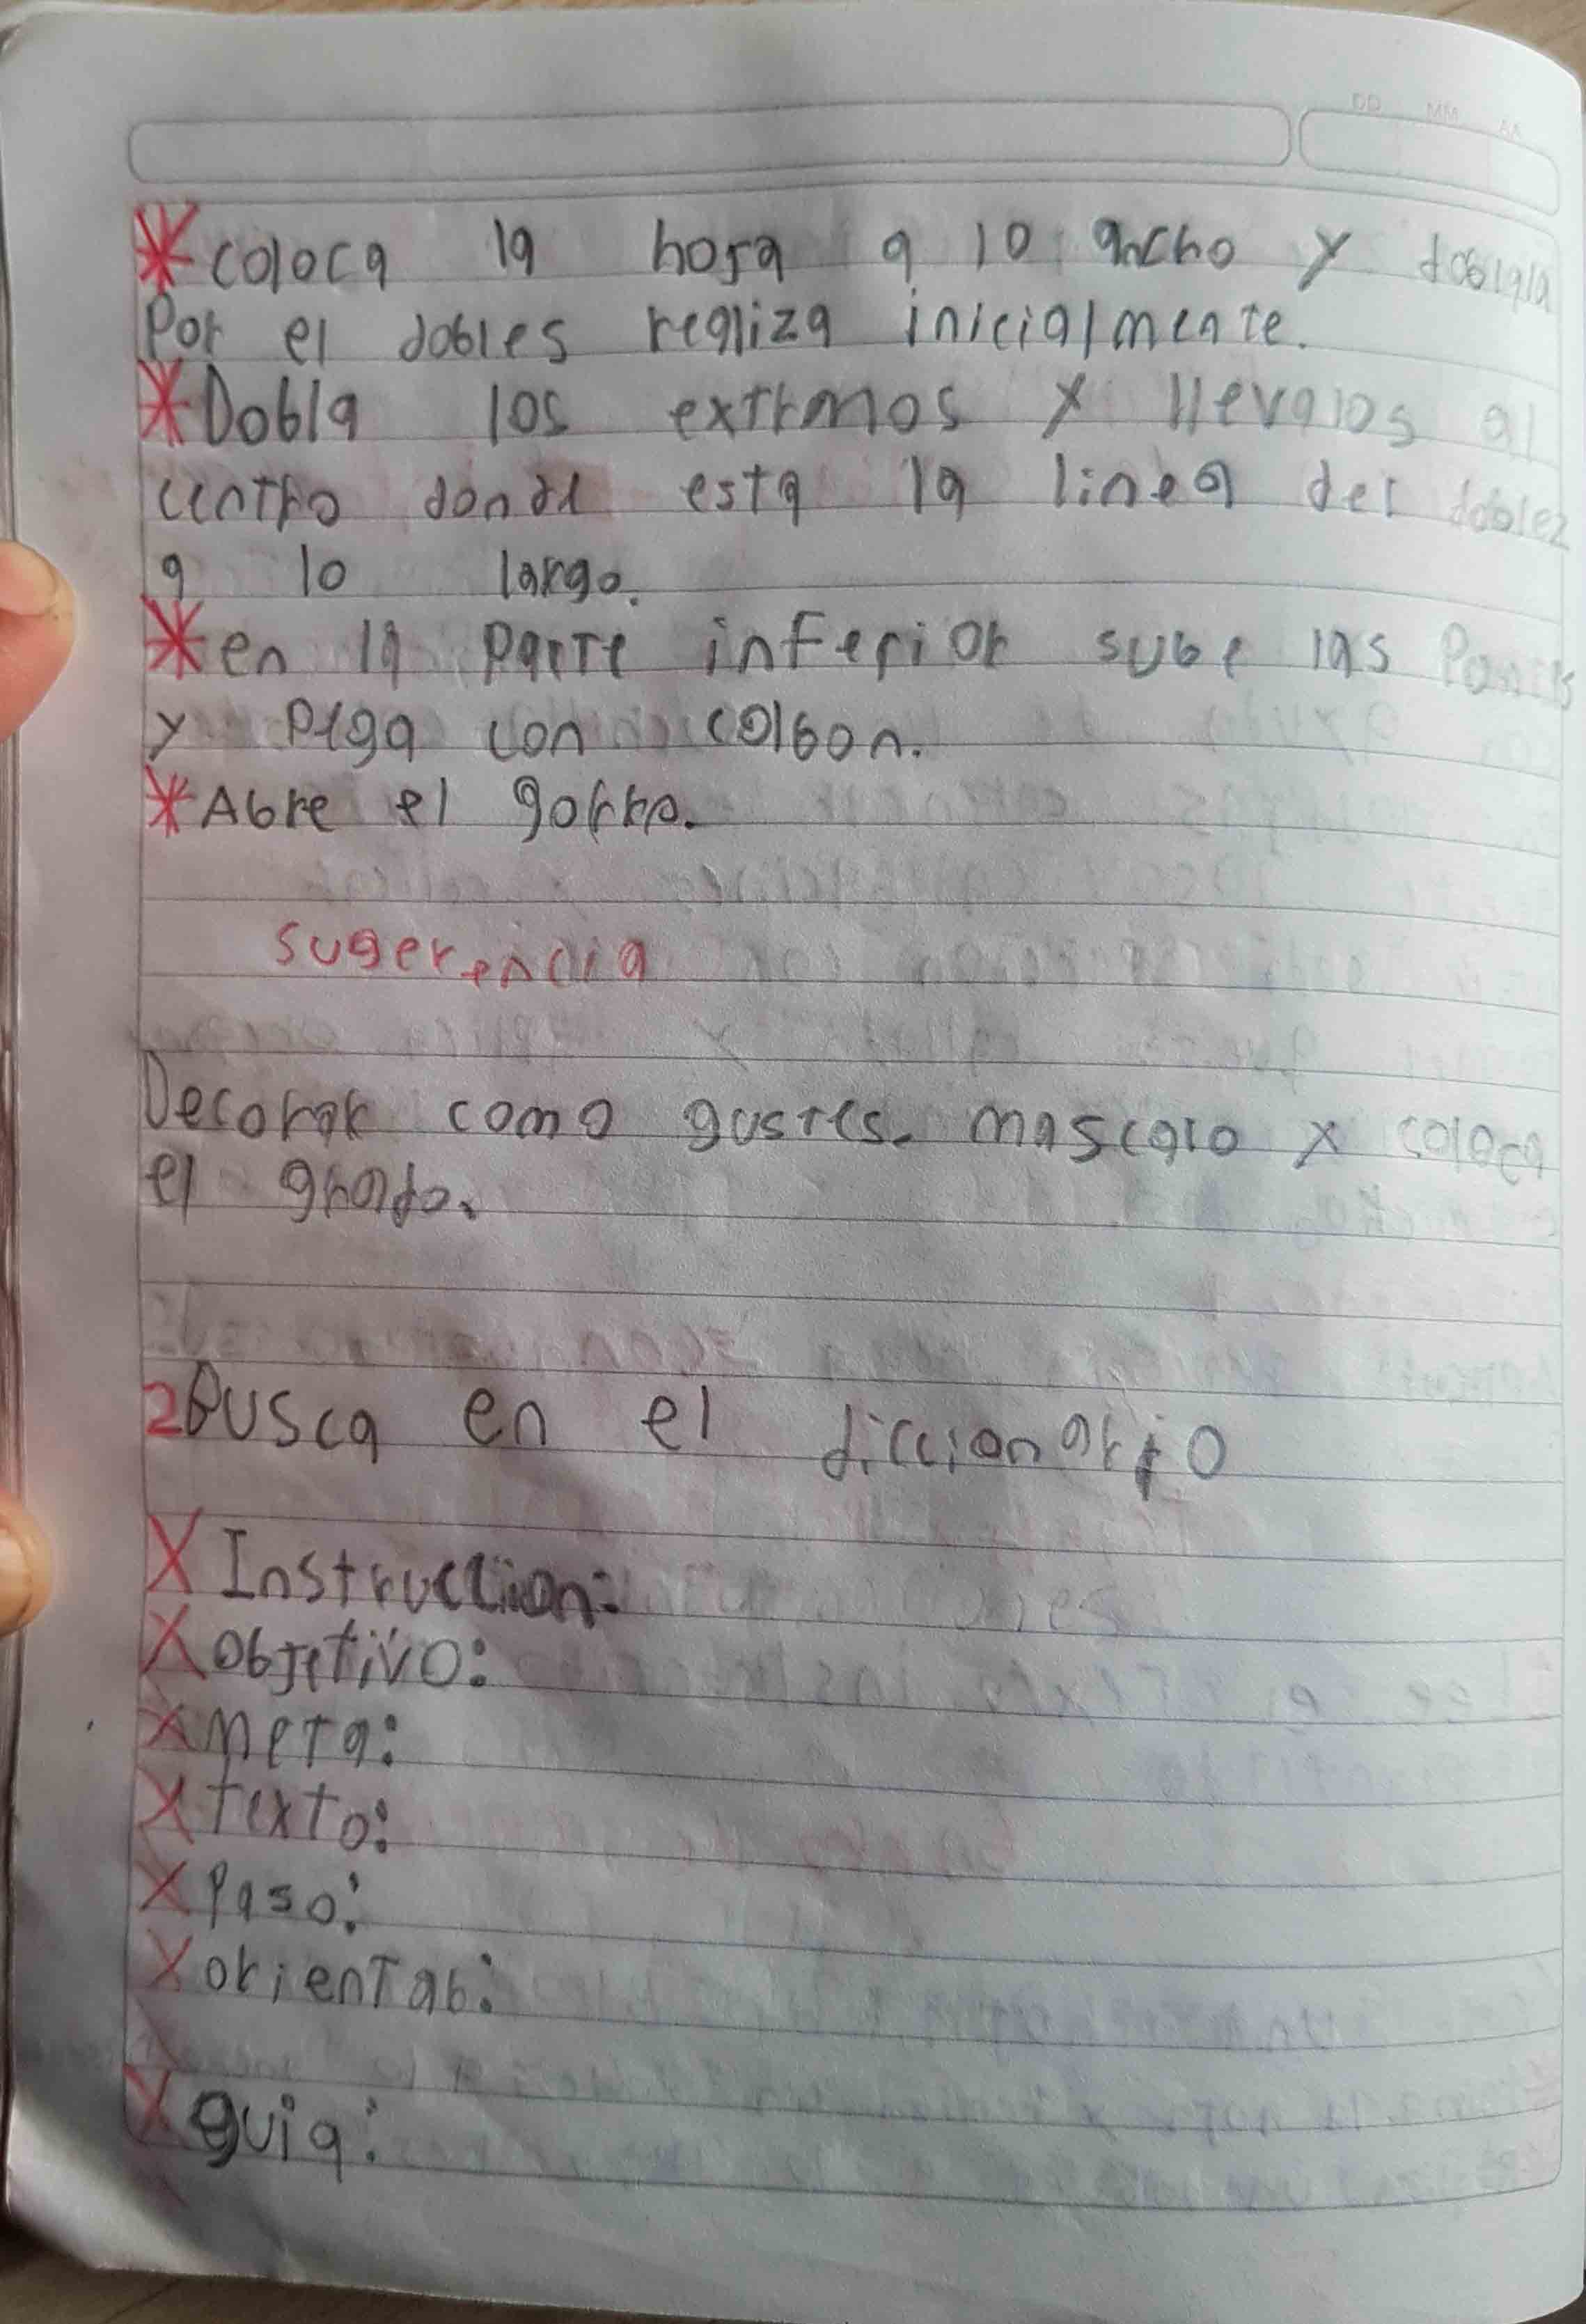 DD MM AA
*coloca la hoja a lo ancho y doblala
Por el dobles realiza inicialmente.
*Dobla los extrmos y llevalos al
centro donde esta la linea del doblez
a lo largo.
*en la parte inferior sube las
y pega con colbon.
*Abre el gorro.
sugerencia
Decorar como gustes. mascalo y coloca
el grado.
2Busca en el diccionario
X Instruccion:
X objetivo:
X meta:
X texto:
X Paso:
X orientab:
X guia: